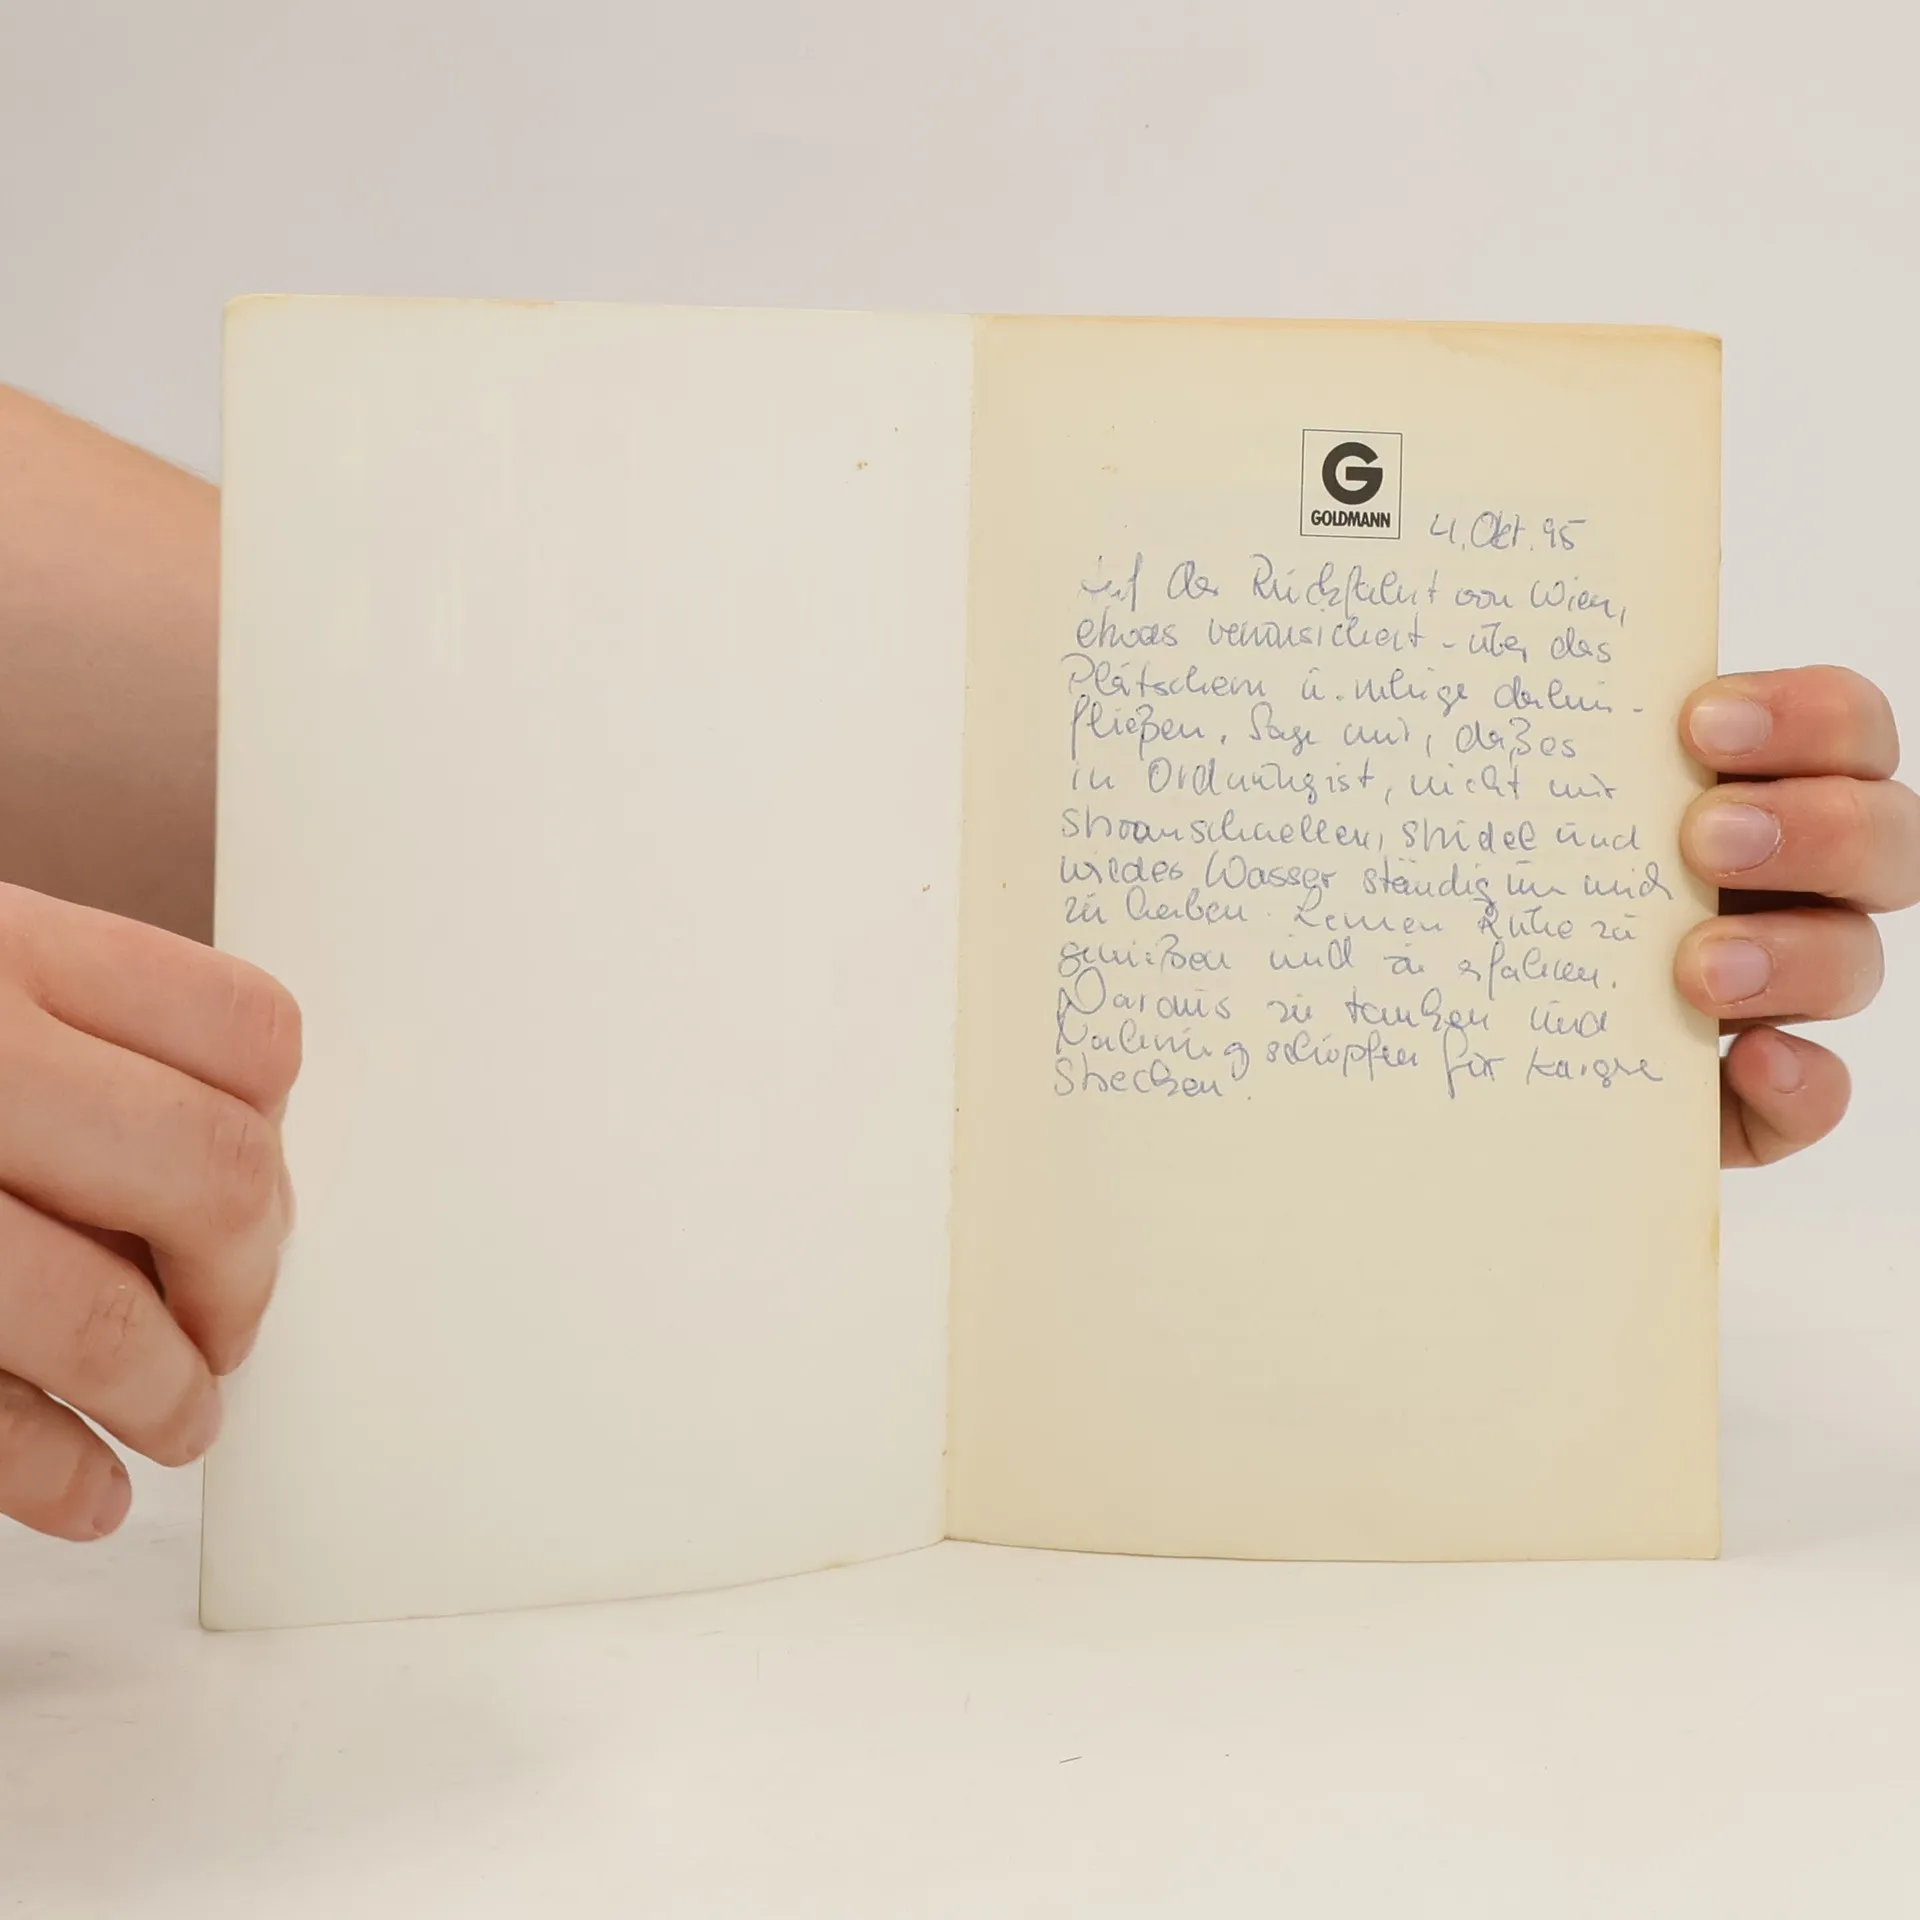 G
GOLDMANN
4. Okt. 95
Auf der Rückfahrt von Wien,
etwas verunsichert - über das
Plätschern u. ruhige dahin-
fließen. Sage mir, daß es
in Ordnung ist, nicht nur
Stromschnellen, Strudel und
wildes Wasser ständig um mich
zu haben. Lernen Ruhe zu
genießen und zu erfahren.
Daraus zu tanken und
Nahrung schöpfen für karge
Strecken.